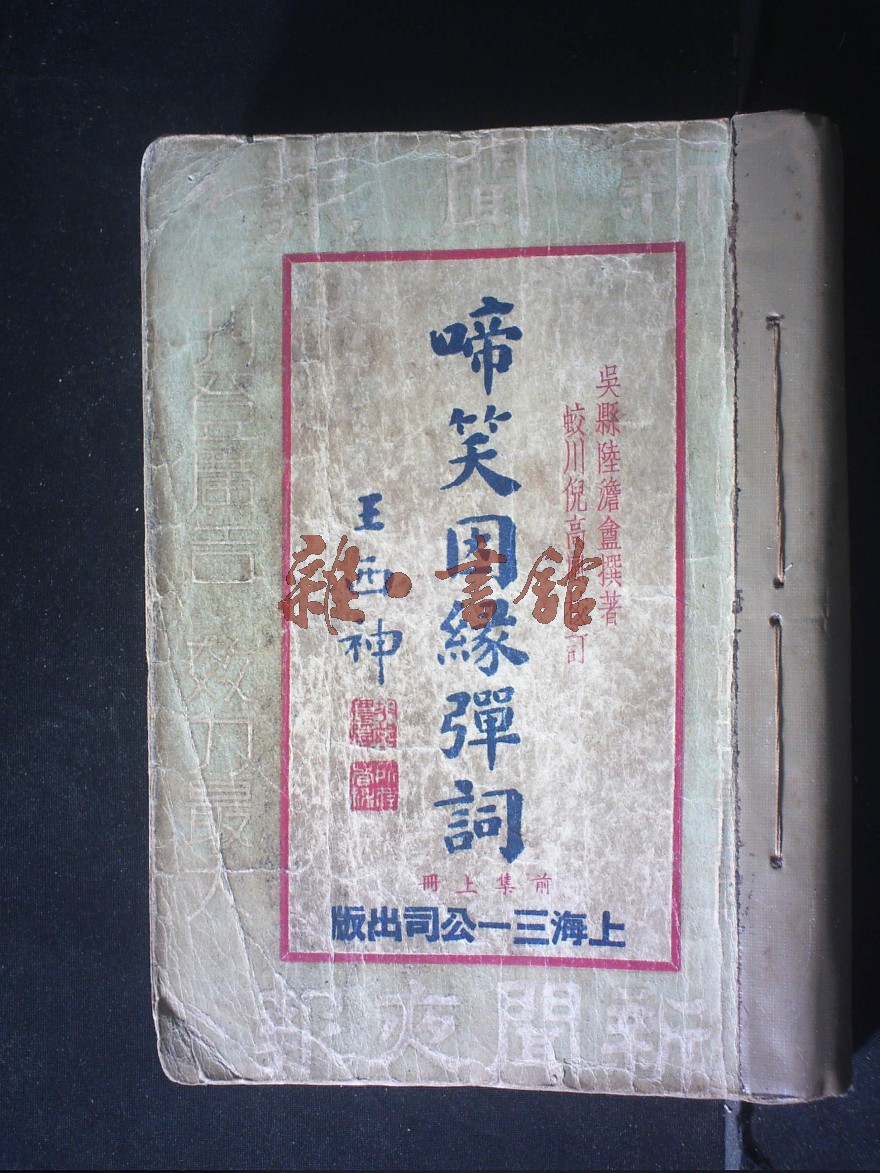 新聞報
吳縣陸澹盦撰著
蛟川倪高
訂
啼笑因緣彈詞
王西神
前集上冊
上海三一公司出版
刊登廣告 效力最大
新聞夜報
雜·書館